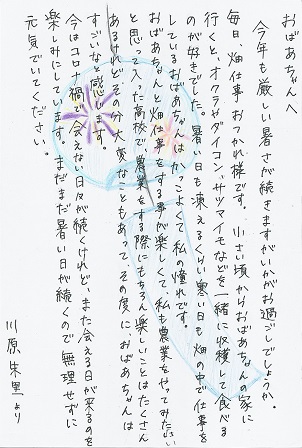 おばあちゃんへ
今年も厳しい暑さが続きますがいかがお過ごしでしょうか。
毎日、畑仕事おつかれ様です。小さい頃からおばあちゃんの家に
行くと、オクラやダイコン、サツマイモなどを一緒に収穫して食べる
のが好きでした。暑い日も凍えるくらい寒い日も畑の中で仕事
しているおばあちゃんはかっこよくて私の憧れです。
おばあちゃんと畑仕事をする事が楽しくて、私も農業をやってみたい
と思って入った高校で農業をする際にもちろん楽しいことはたくさん
あるけれどその分大変なこともあって、その度に、おばあちゃんは
すごいなと感じます。
今はコロナ禍で会えない日々が続くけれど、また会える日が来るのを
楽しみにしてます。まだまだ暑い日が続くので無理せずに
元気でいてください。
川原朱里より